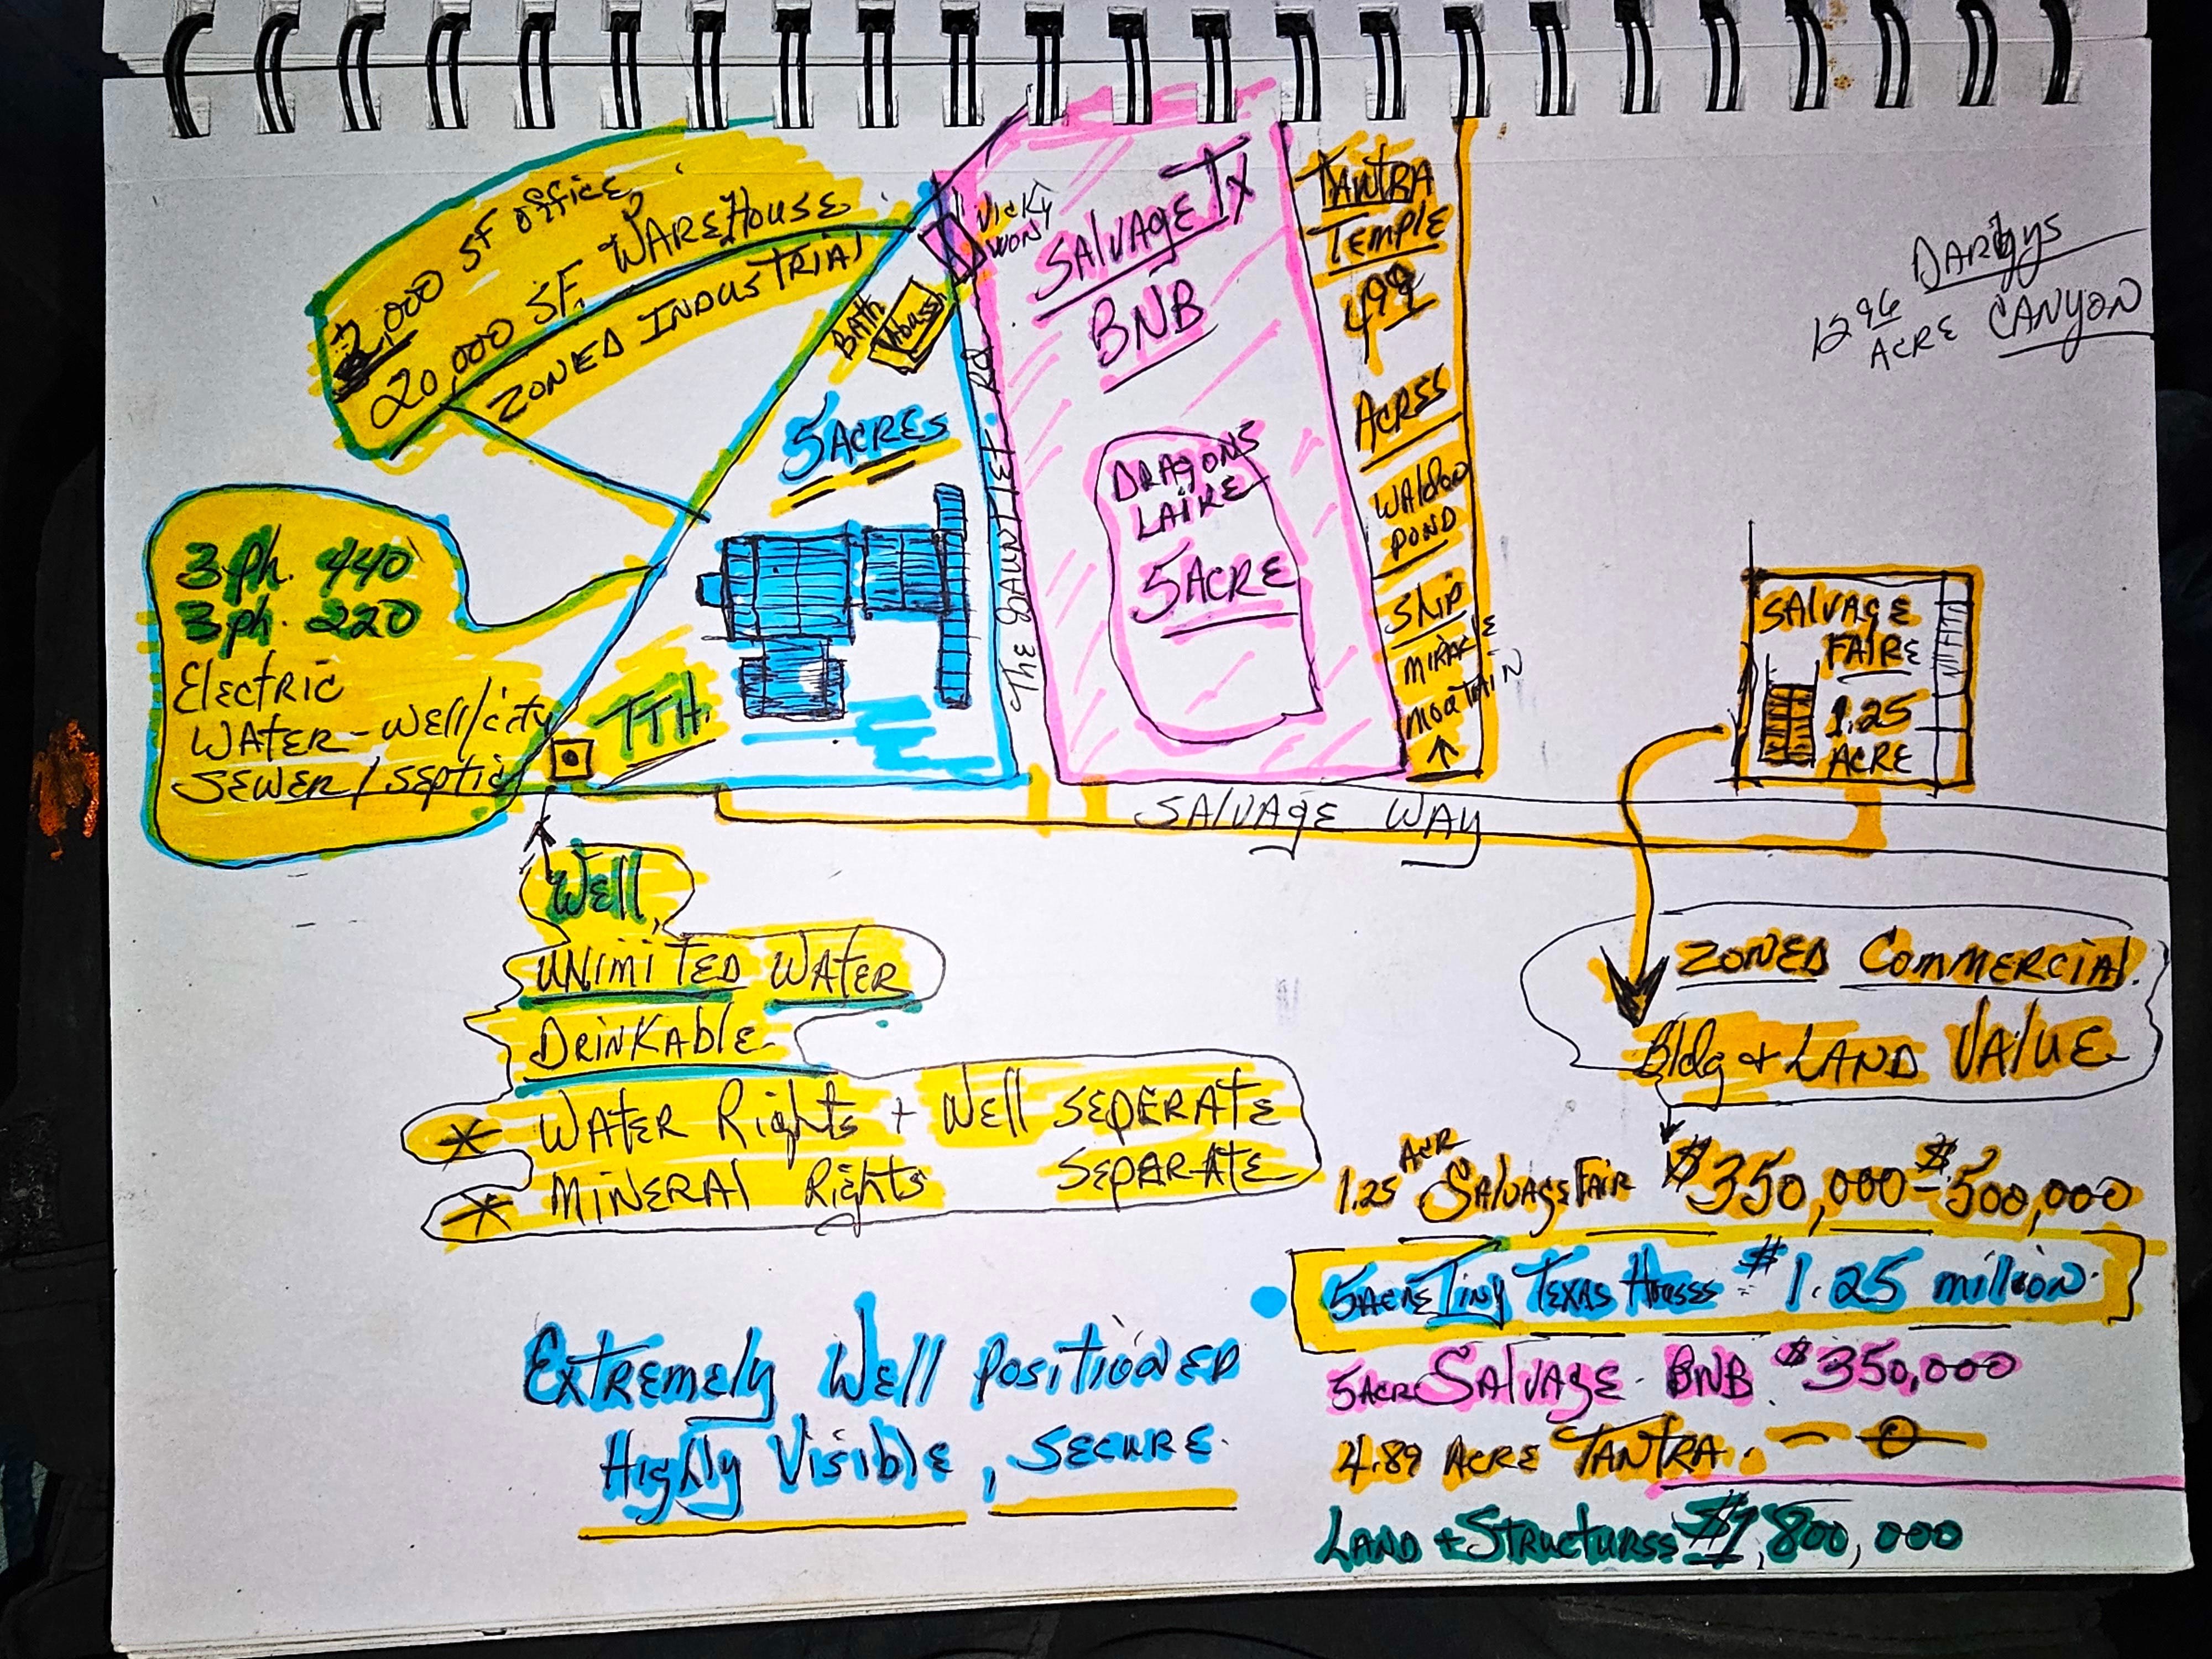 2,000 SF OFFICE,
20,000 SF. WAREHOUSE
ZONED INDUSTRIAL
3 Ph. 440
3 ph. 220
Electric
WATER-Well/city
SEWER/septic
TTH.
5 ACRES
BATH
House
VICKY
WON
THE GAUNTLET RD
SALVAGE TX
BNB
DRAGONS
LAIRE
5 ACRE
TANTRA
TEMPLE
499
ACRES
WALDEN
POND
Ship
MIRAKLE
MOUTAIN
DARBYS
12 96 ACRE CANYON
SALVAGE
FAIRE
1.25
ACRE
SALVAGE WAY
Well
UNIMITED WATER
DRINKABLE
* WATER Rights + Well SEPERATE
* MINERAL Rights SEPARATE
EXTREMELY Well POSITIONED
Highly Visible, SECURE.
ZONED COMMERCIAL.
Bldg + LAND VALUE
1.25 ACR SALVAGE FAIR $350,000-$500,000
5 ACRE TINY TEXAS HOUSES $1.25 million.
5 ACR SALVAGE BNB. $350,000
4.89 ACRE TANTRA. — 0
LAND + STRUCTURES $1,800,000